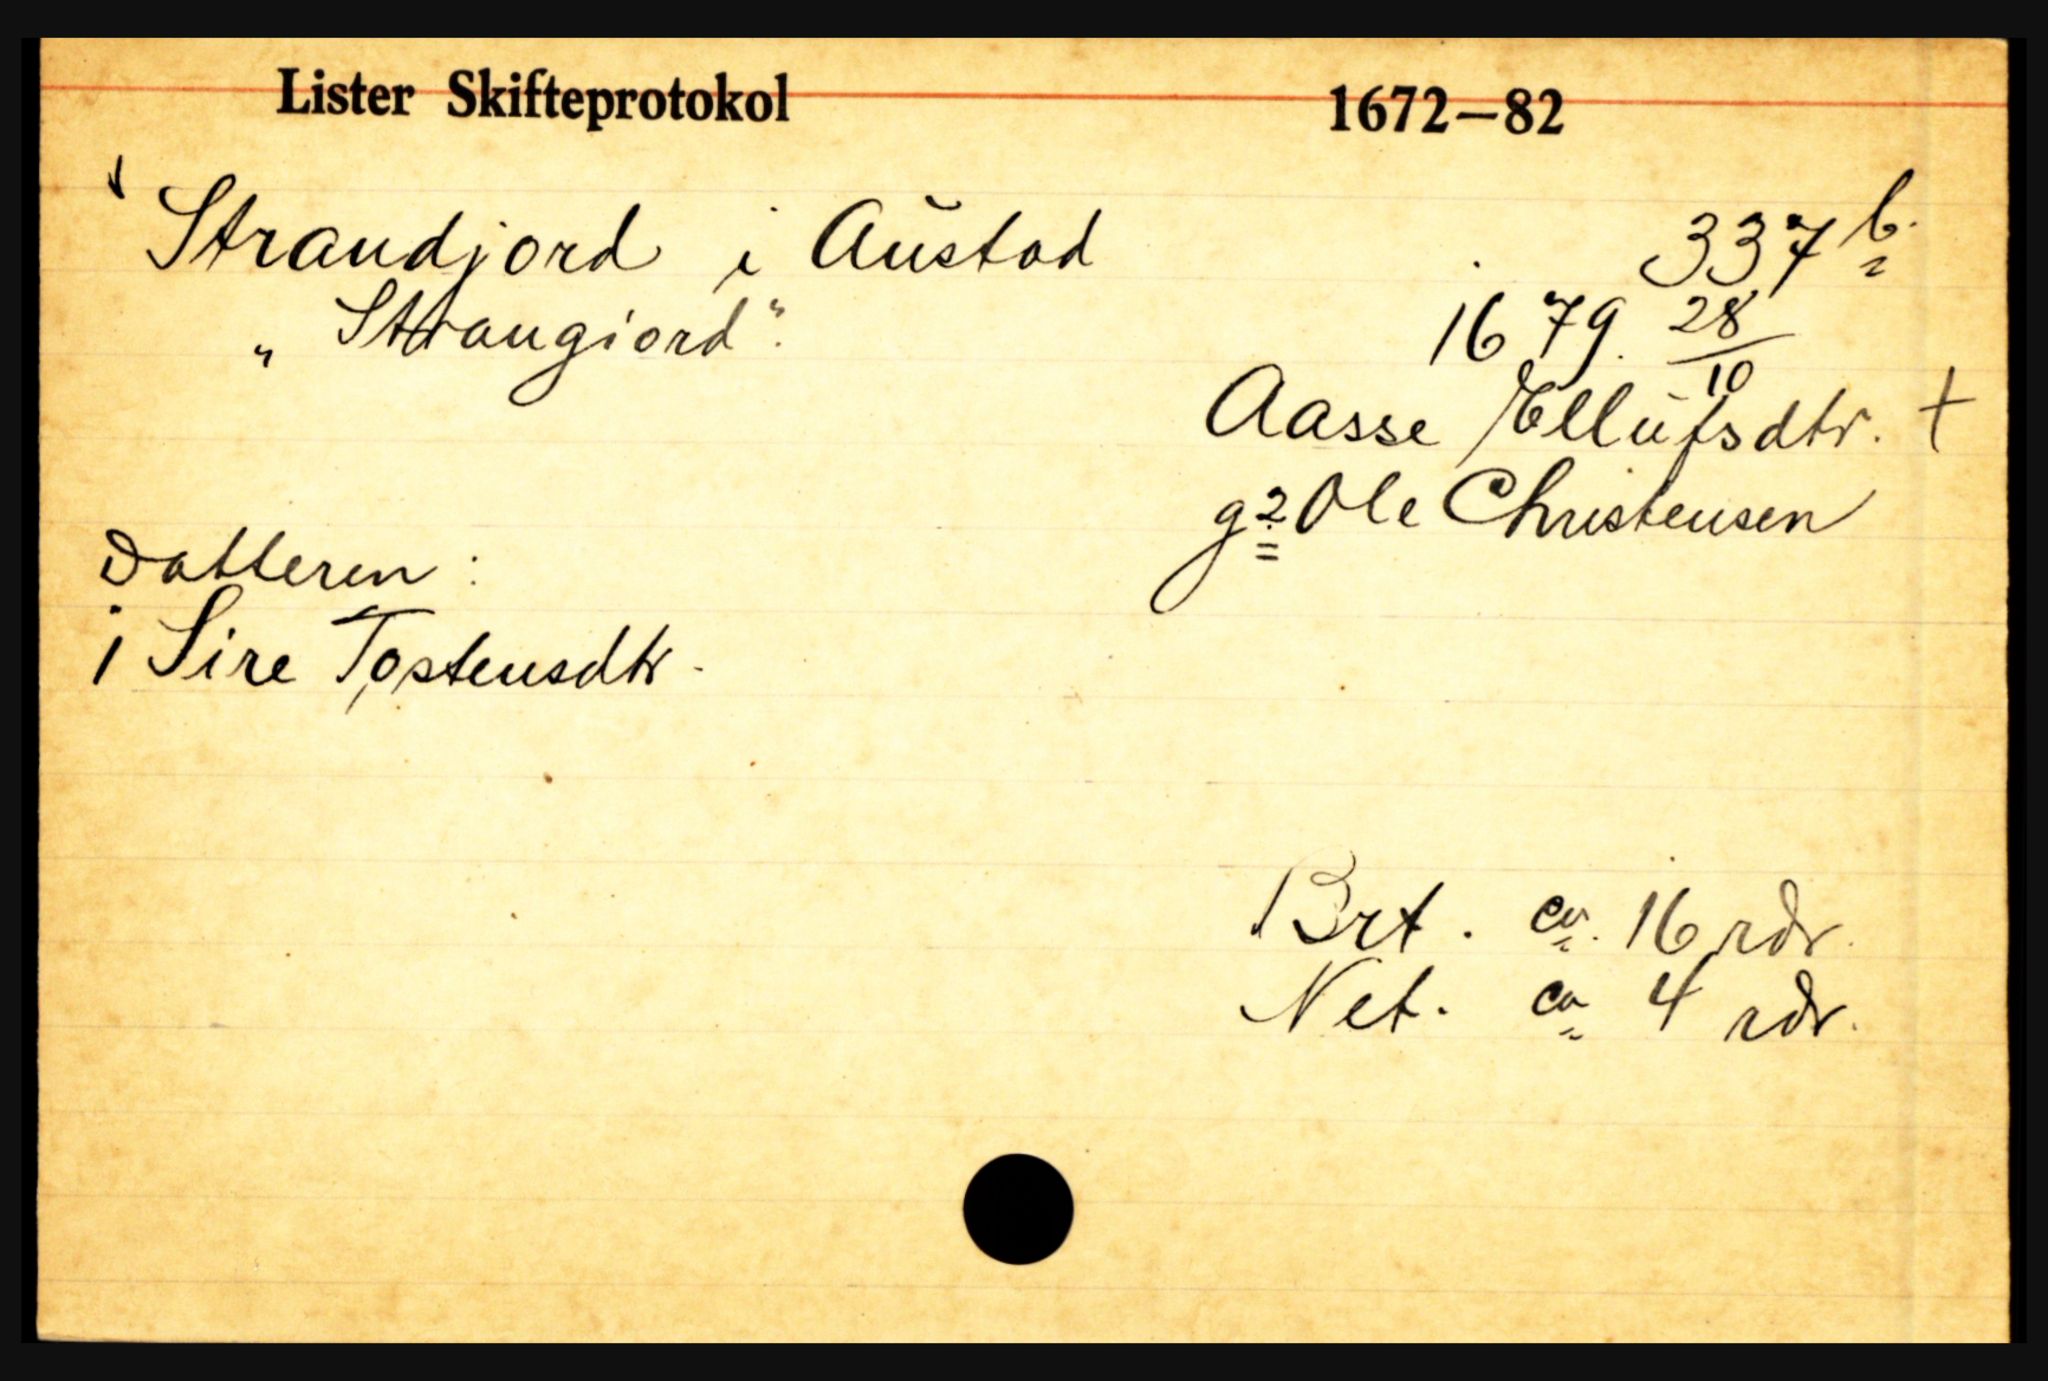 Lister Skifteprotokol 1672—82
Strandjord i Austad 337 b.
„Strangiord". 1679. 28/10
Aasse Ellufsdtr. +
g 2 Ole Christensen
Datteren:
1 Sire Tostensdtr.
Brt. ca. 16 rdr.
Net. ca 4 rdr.